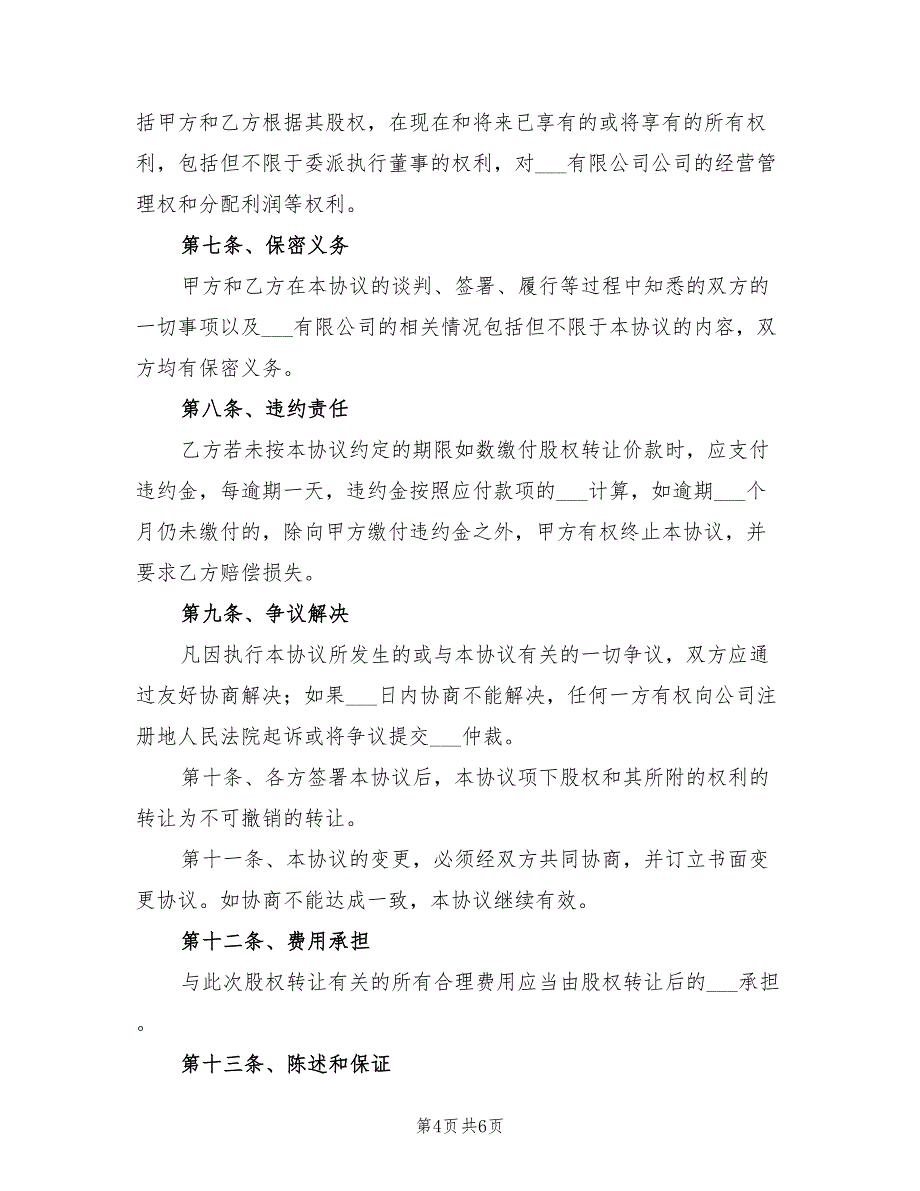 括甲方和乙方根据其股权，在现在和将来已享有的或将享有的所有权
利，包括但不限于委派执行董事的权利，对___有限公司公司的经营管
理权和分配利润等权利。
第七条、保密义务
甲方和乙方在本协议的谈判、签署、履行等过程中知悉的双方的
一切事项以及___有限公司的相关情况包括但不限于本协议的内容，双
方均有保密义务。
第八条、违约责任
乙方若未按本协议约定的期限如数缴付股权转让价款时，应支付
违约金，每逾期一天，违约金按照应付款项的___计算，如逾期___个
月仍未缴付的，除向甲方缴付违约金之外，甲方有权终止本协议，并
要求乙方赔偿损失。
第九条、争议解决
凡因执行本协议所发生的或与本协议有关的一切争议，双方应通
过友好协商解决；如果___日内协商不能解决，任何一方有权向公司注
册地人民法院起诉或将争议提交___仲裁。
第十条、各方签署本协议后，本协议项下股权和其所附的权利的
转让为不可撤销的转让。
第十一条、本协议的变更，必须经双方共同协商，并订立书面变
更协议。如协商不能达成一致，本协议继续有效。
第十二条、费用承担
与此次股权转让有关的所有合理费用应当由股权转让后的___承担
。
第十三条、陈述和保证
第4页共6页